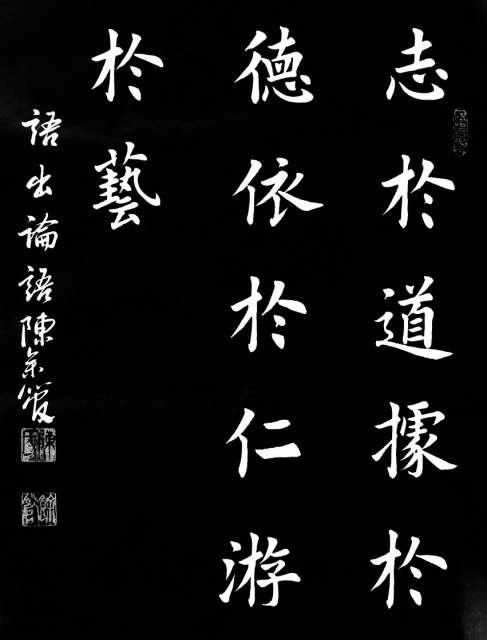 志於道據於
德依於仁游
於藝
語出論語陳余夋